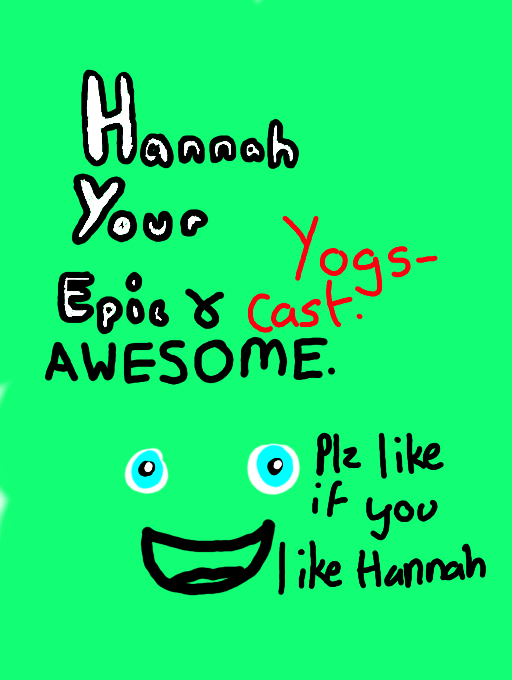 Hannah
Your
Epic &
AWESOME.
Yogs-
cast.
Plz like
if you
like Hannah